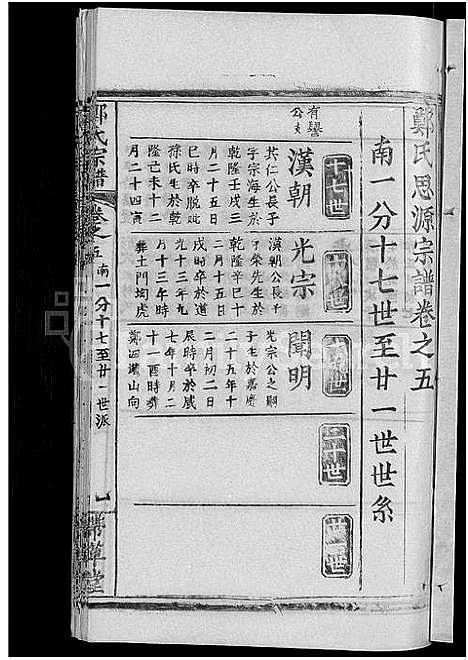 鄭氏思源宗譜卷之五
南一分十七世至廿一世世系
十七世
十八世
十九世
二十世
廿一世
有譽
公支
漢朝
其仁公長子
字宗海生於
乾隆壬戌三
月二十五日
巳時卒脫妣
徐氏生於乾
隆己未十二
月二十四寅
光宗
漢朝公長子
字榮先生於
乾隆辛巳十
二月十五日
戌時卒於道
光十三年九
月十三午時
葬土門塆虎
聞明
光宗公之嗣
子生於嘉慶
二十五年十
二月初二日
辰時卒於咸
七年十月二
十一酉時葬
鄭泗灣山向
鄭氏宗譜
卷之五
南一分十七至廿一世派
一
帶草堂